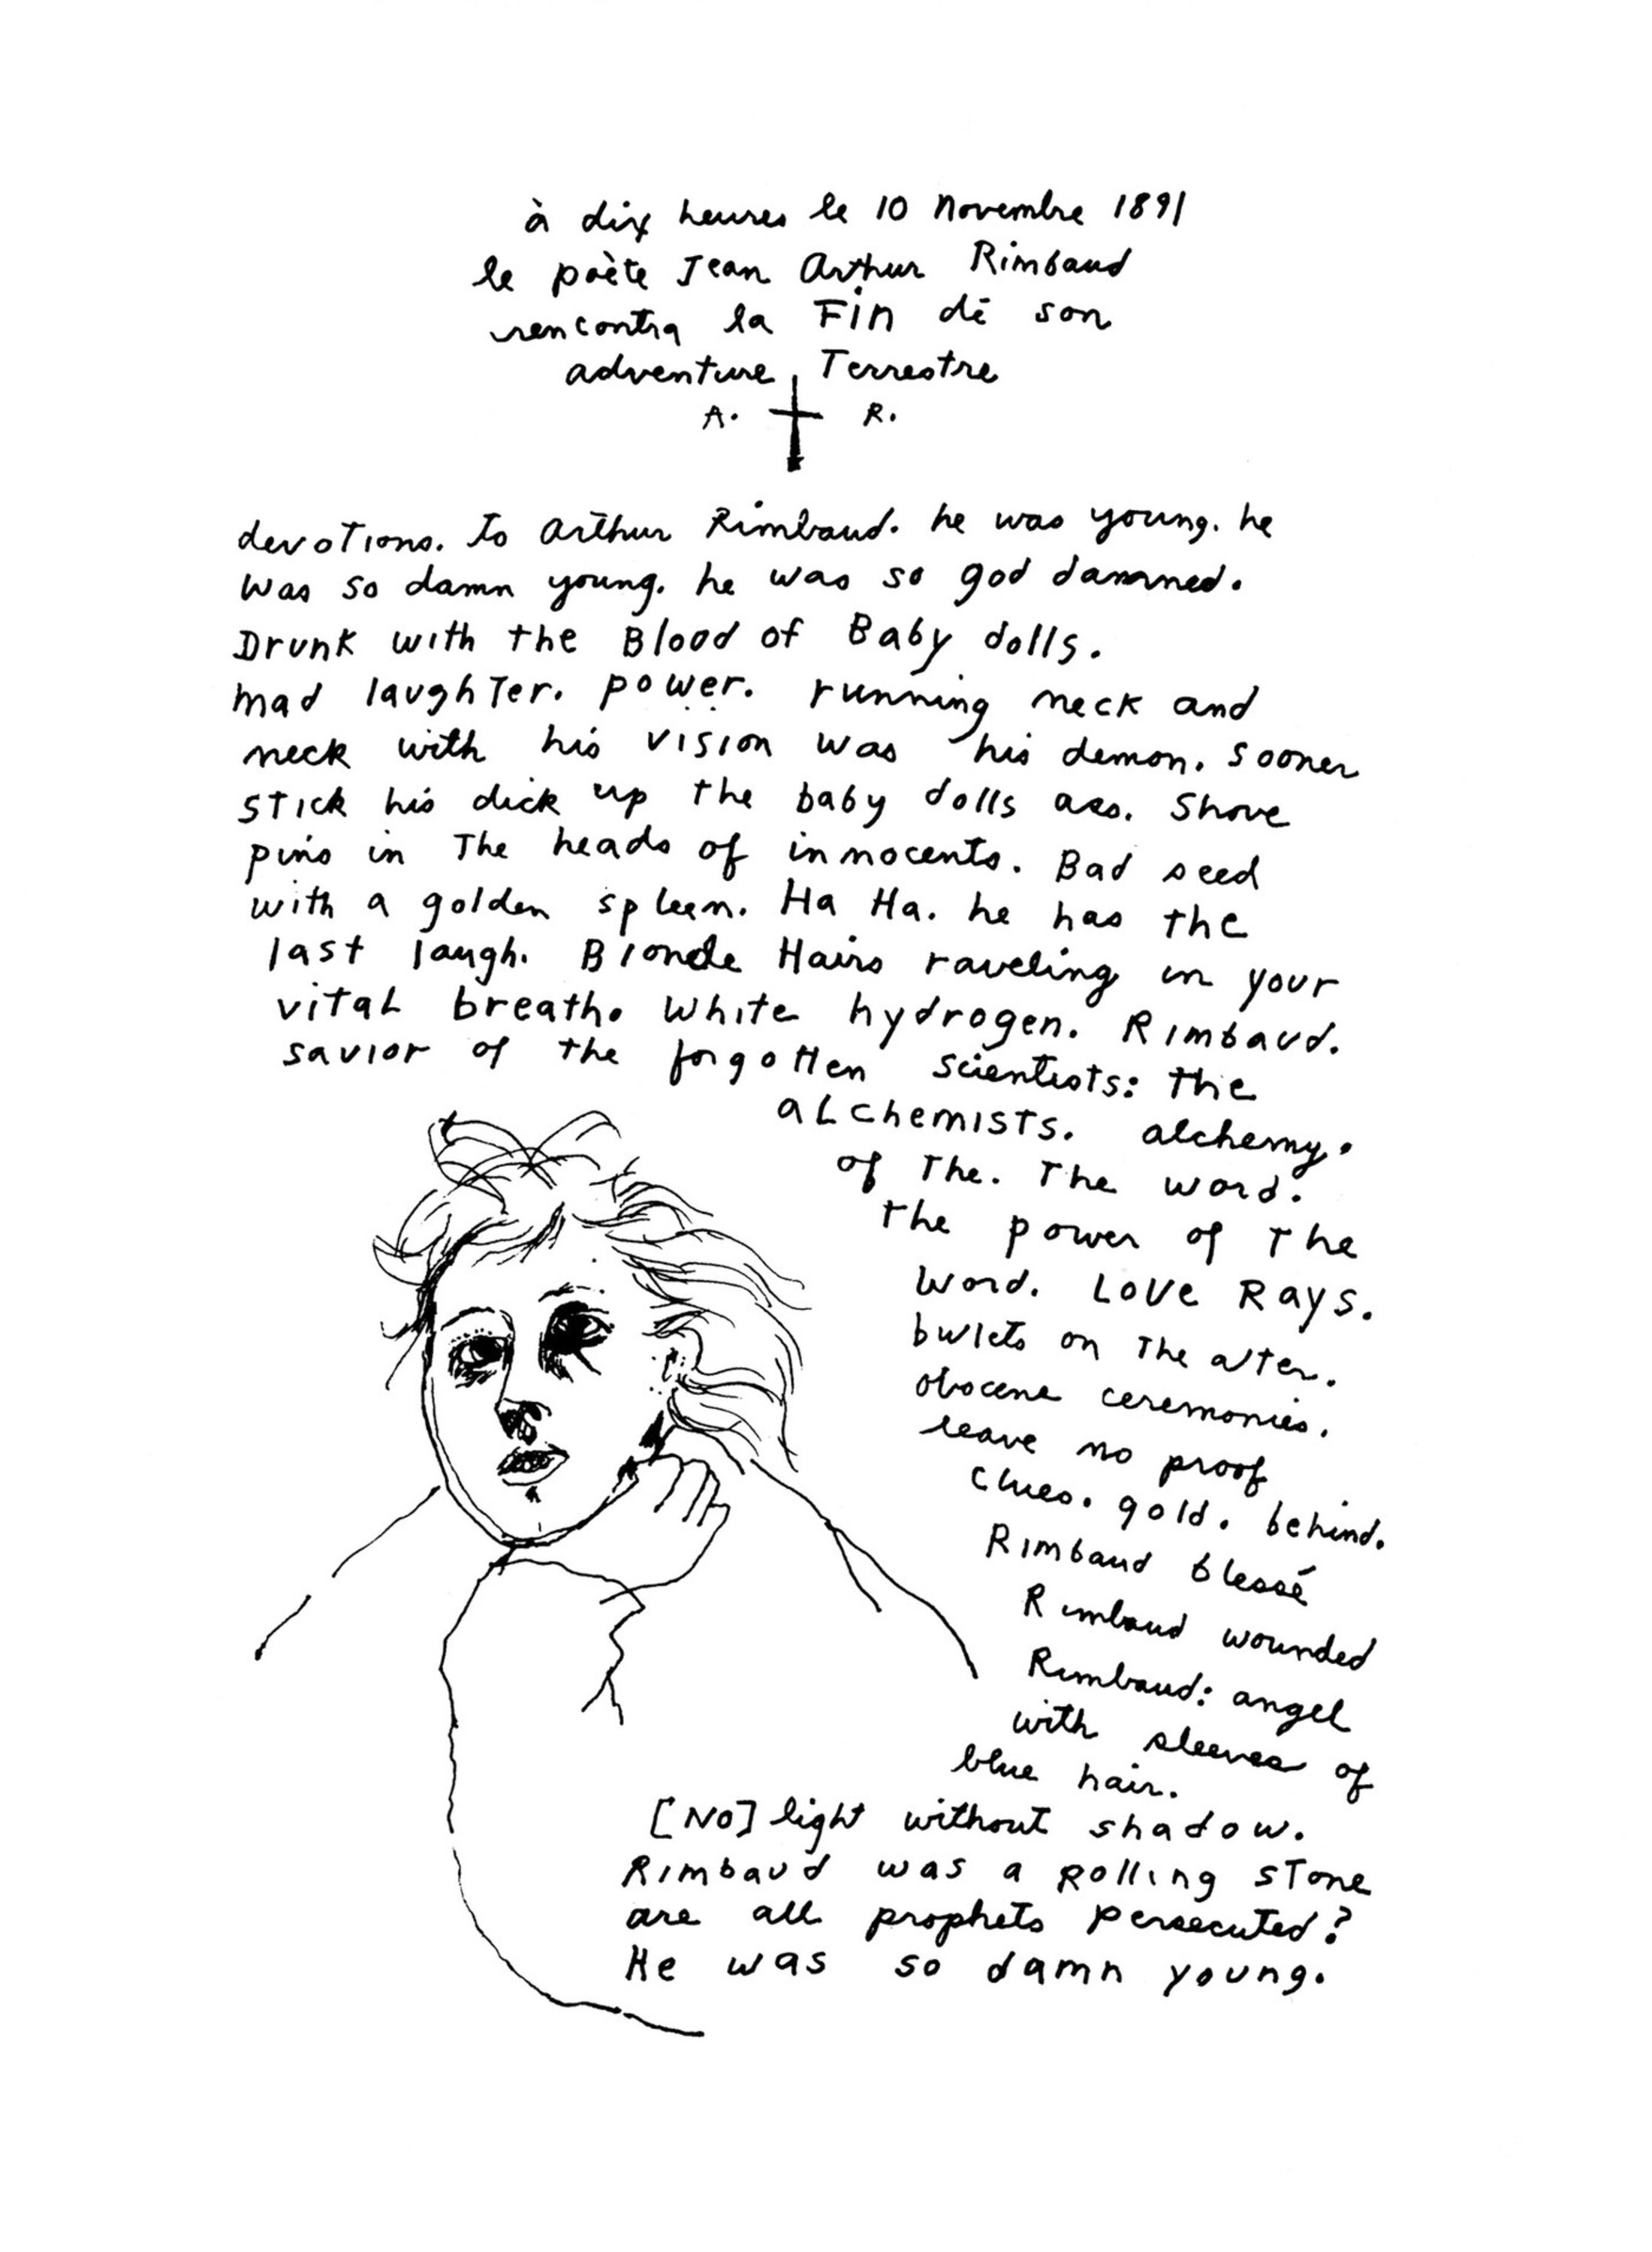 à dix heures le 10 novembre 1891
le poète Jean Arthur Rimbaud
rencontra la Fin de son
adventure Terrestre
A. R.
devotions. to Arthur Rimbaud. he was young. he
was so damn young. he was so god damned.
Drunk with the Blood of Baby dolls.
mad laughter. power. running neck and
neck with his vision was his demon. sooner
stick his dick up the baby dolls ass. Shove
pins in The heads of innocents. Bad seed
with a golden spleen. Ha Ha. he has the
last laugh. Blonde Hairs raveling in your
vital breath. White hydrogen. Rimbaud.
savior of the forgotten scientists: the
alchemists. alchemy.
of The. The word.
the power of the
word. Love Rays.
bullets on the alter.
obscene ceremonies.
leave no proof
clues. gold. behind.
Rimbaud blessé
Rimbaud wounded
Rimbaud: angel
with sleeves of
blue hair.
[NO] light without shadow.
Rimbaud was a Rolling stone
are all prophets persecuted?
He was so damn young.